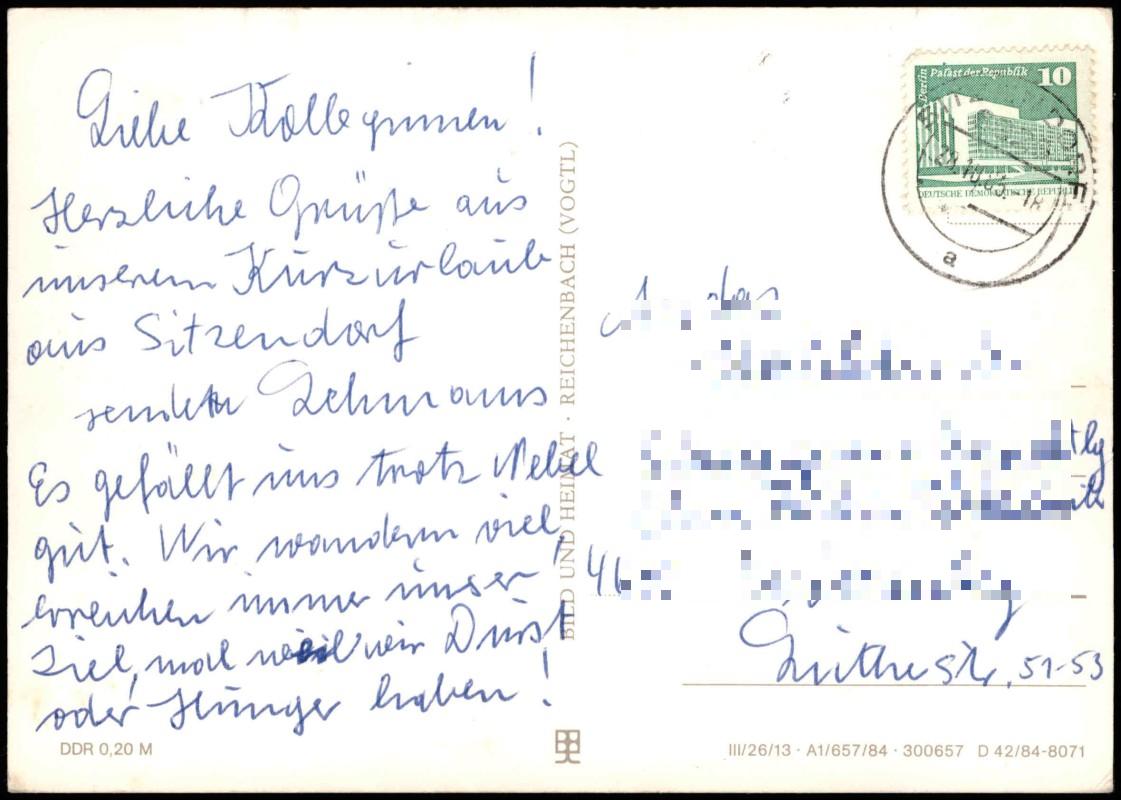 Liebe Kolleginnen!
Herzliche Grüße aus
unserem Kurzurlaub
aus Sitzendorf
senden Lehmanns
Es gefällt uns trotz Nebel
gut. Wir wandern viel,
erreichen immer unser
Ziel, mal weil wir Durst
oder Hunger haben!
DDR 0,20 M
BILD UND HEIMAT · REICHENBACH (VOGTL)
Berlin Palast der Republik 10
DEUTSCHE DEMOKRATISCHE REPUBLIK
18
a
An das
51-53
III/26/13 · A1/657/84 · 300657 D 42/84-8071